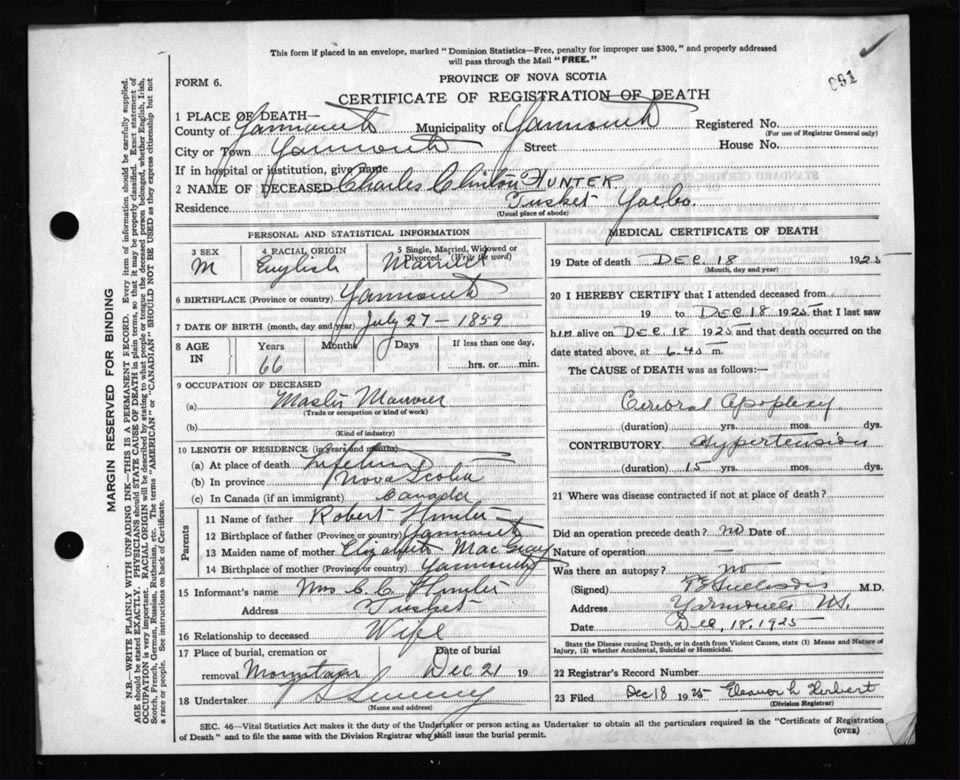 This form if placed in an envelope, marked "Dominion Statistics—Free, penalty for improper use $300," and properly addressed
will pass through the Mail "FREE."
FORM 6.
PROVINCE OF NOVA SCOTIA
CERTIFICATE OF REGISTRATION OF DEATH
1 PLACE OF DEATH—
County of Yarmouth Municipality of Yarmouth Registered No.
(For use of Registrar General only)
City or Town Yarmouth Street House No.
If in hospital or institution, give name
2 NAME OF DECEASED Charles Clinton HUNTER
Residence Tusket Yar Co.
(Usual place of abode)
PERSONAL AND STATISTICAL INFORMATION
3 SEX M
4 RACIAL ORIGIN English
5 Single, Married, Widowed or
Divorced. (Write the word)
Married
6 BIRTHPLACE (Province or country) Yarmouth
7 DATE OF BIRTH (month, day and year) July 27 - 1859
8 AGE IN Years 66 Months Days If less than one day,
hrs. or min.
9 OCCUPATION OF DECEASED
(a) Master Mariner
(Trade or occupation or kind of work)
(b)
(Kind of industry)
10 LENGTH OF RESIDENCE (in years and months)
(a) At place of death lifetime
(b) In province Nova Scotia
(c) In Canada (if an immigrant) Canada
Parents
11 Name of father Robert Hunter
12 Birthplace of father (Province or country) Yarmouth
13 Maiden name of mother Elizabeth
14 Birthplace of mother (Province or country) Yarmouth
15 Informant's name Mrs C. C. Hunter
Address Tusket
16 Relationship to deceased Wife
17 Place of burial, cremation or
removal
Date of burial
Dec 21 19
18 Undertaker
(Name and address)
MEDICAL CERTIFICATE OF DEATH
19 Date of death DEC. 18 1925
(Month, day and year)
20 I HEREBY CERTIFY that I attended deceased from
19 to DEC 18 1925, that I last saw
him alive on DEC. 18 1925 and that death occurred on the
date stated above, at 6.45 m.
The CAUSE of DEATH was as follows:—
Cerebral Apoplexy
(duration) yrs. mos. dys.
CONTRIBUTORY Hypertension
(duration) 15 yrs. mos. dys.
21 Where was disease contracted if not at place of death?
Did an operation precede death? no Date of
Nature of operation —
Was there an autopsy? no
(Signed) M.D.
Address Yarmouth N.S.
Date Dec. 18. 1925
State the Disease causing Death, or in death from Violent Causes, state (1) Means and Nature of
Injury, (2) whether Accidental, Suicidal or Homicidal.
22 Registrar's Record Number
23 Filed Dec 18 1925 Eleanor L Herbert
(Division Registrar)
SEC. 46—Vital Statistics Act makes it the duty of the Undertaker or person acting as Undertaker to obtain all the particulars required in the "Certificate of Registration
of Death" and to file the same with the Division Registrar who shall issue the burial permit.
(OVER)
MARGIN RESERVED FOR BINDING
N.B.—WRITE PLAINLY WITH UNFADING INK—THIS IS A PERMANENT RECORD. Every item of information should be carefully supplied.
AGE should be stated EXACTLY. PHYSICIANS should STATE CAUSE OF DEATH in plain terms, so that it may be properly classified. Exact statement of
OCCUPATION is very important. RACIAL ORIGIN will be described by stating to what people or tongue the deceased person belonged, whether English, Irish,
Scotch, French, German, Russian, Ruthenian, etc. The terms "AMERICAN" or "CANADIAN" SHOULD NOT BE USED as they express citizenship but not
a race or people. See instructions on back of Certificate.